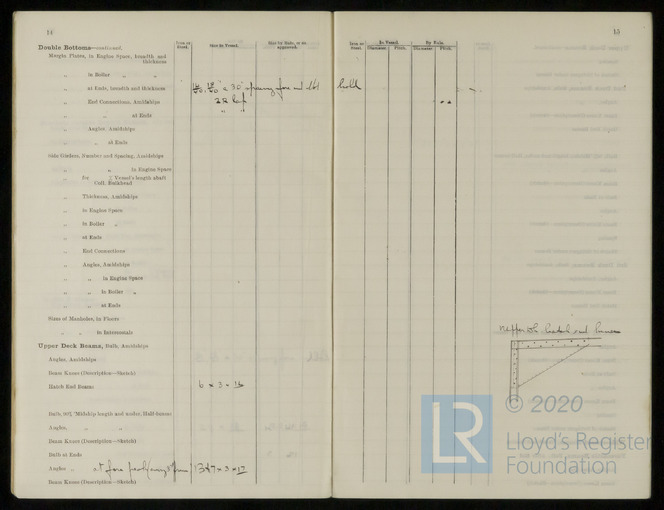 14
Iron or Steel.
Size in Vessel.
Size by Rule, or as approved.
Double Bottoms—continued.
Margin Plates, in Engine Space, breadth and thickness
„ in Boiler „ „
„ at Ends, breadth and thickness
„ End Connections, Amidships
„ „ at Ends
„ Angles, Amidships
„ „ at Ends
Side Girders, Number and Spacing, Amidships
„ „ in Engine Space
„ for Vessel's length abaft Coll. Bulkhead
„ Thickness, Amidships
„ in Engine Space
„ in Boiler „
„ at Ends
„ End Connections
„ Angles, Amidships
„ „ in Engine Space
„ „ in Boiler „
„ „ at Ends
Sizes of Manholes, in Floors
„ „ in Intercostals
Upper Deck Beams, Bulb, Amidships
Angles, Amidships
Beam Knees (Description—Sketch)
Hatch End Beams 6 × 3 × 16
Bulb, Midship length and under, Half-beams
Angles, „ „
Beam Knees (Description—Sketch)
Bulb at Ends
Angles „ at fore
Beam Knees (Description—Sketch)
15
Iron or Steel.
In Vessel.
By Rule.
Diameter.
Pitch.
Diameter.
Pitch.
hold
hatch end
LR
© 2020
Lloyd's Register
Foundation